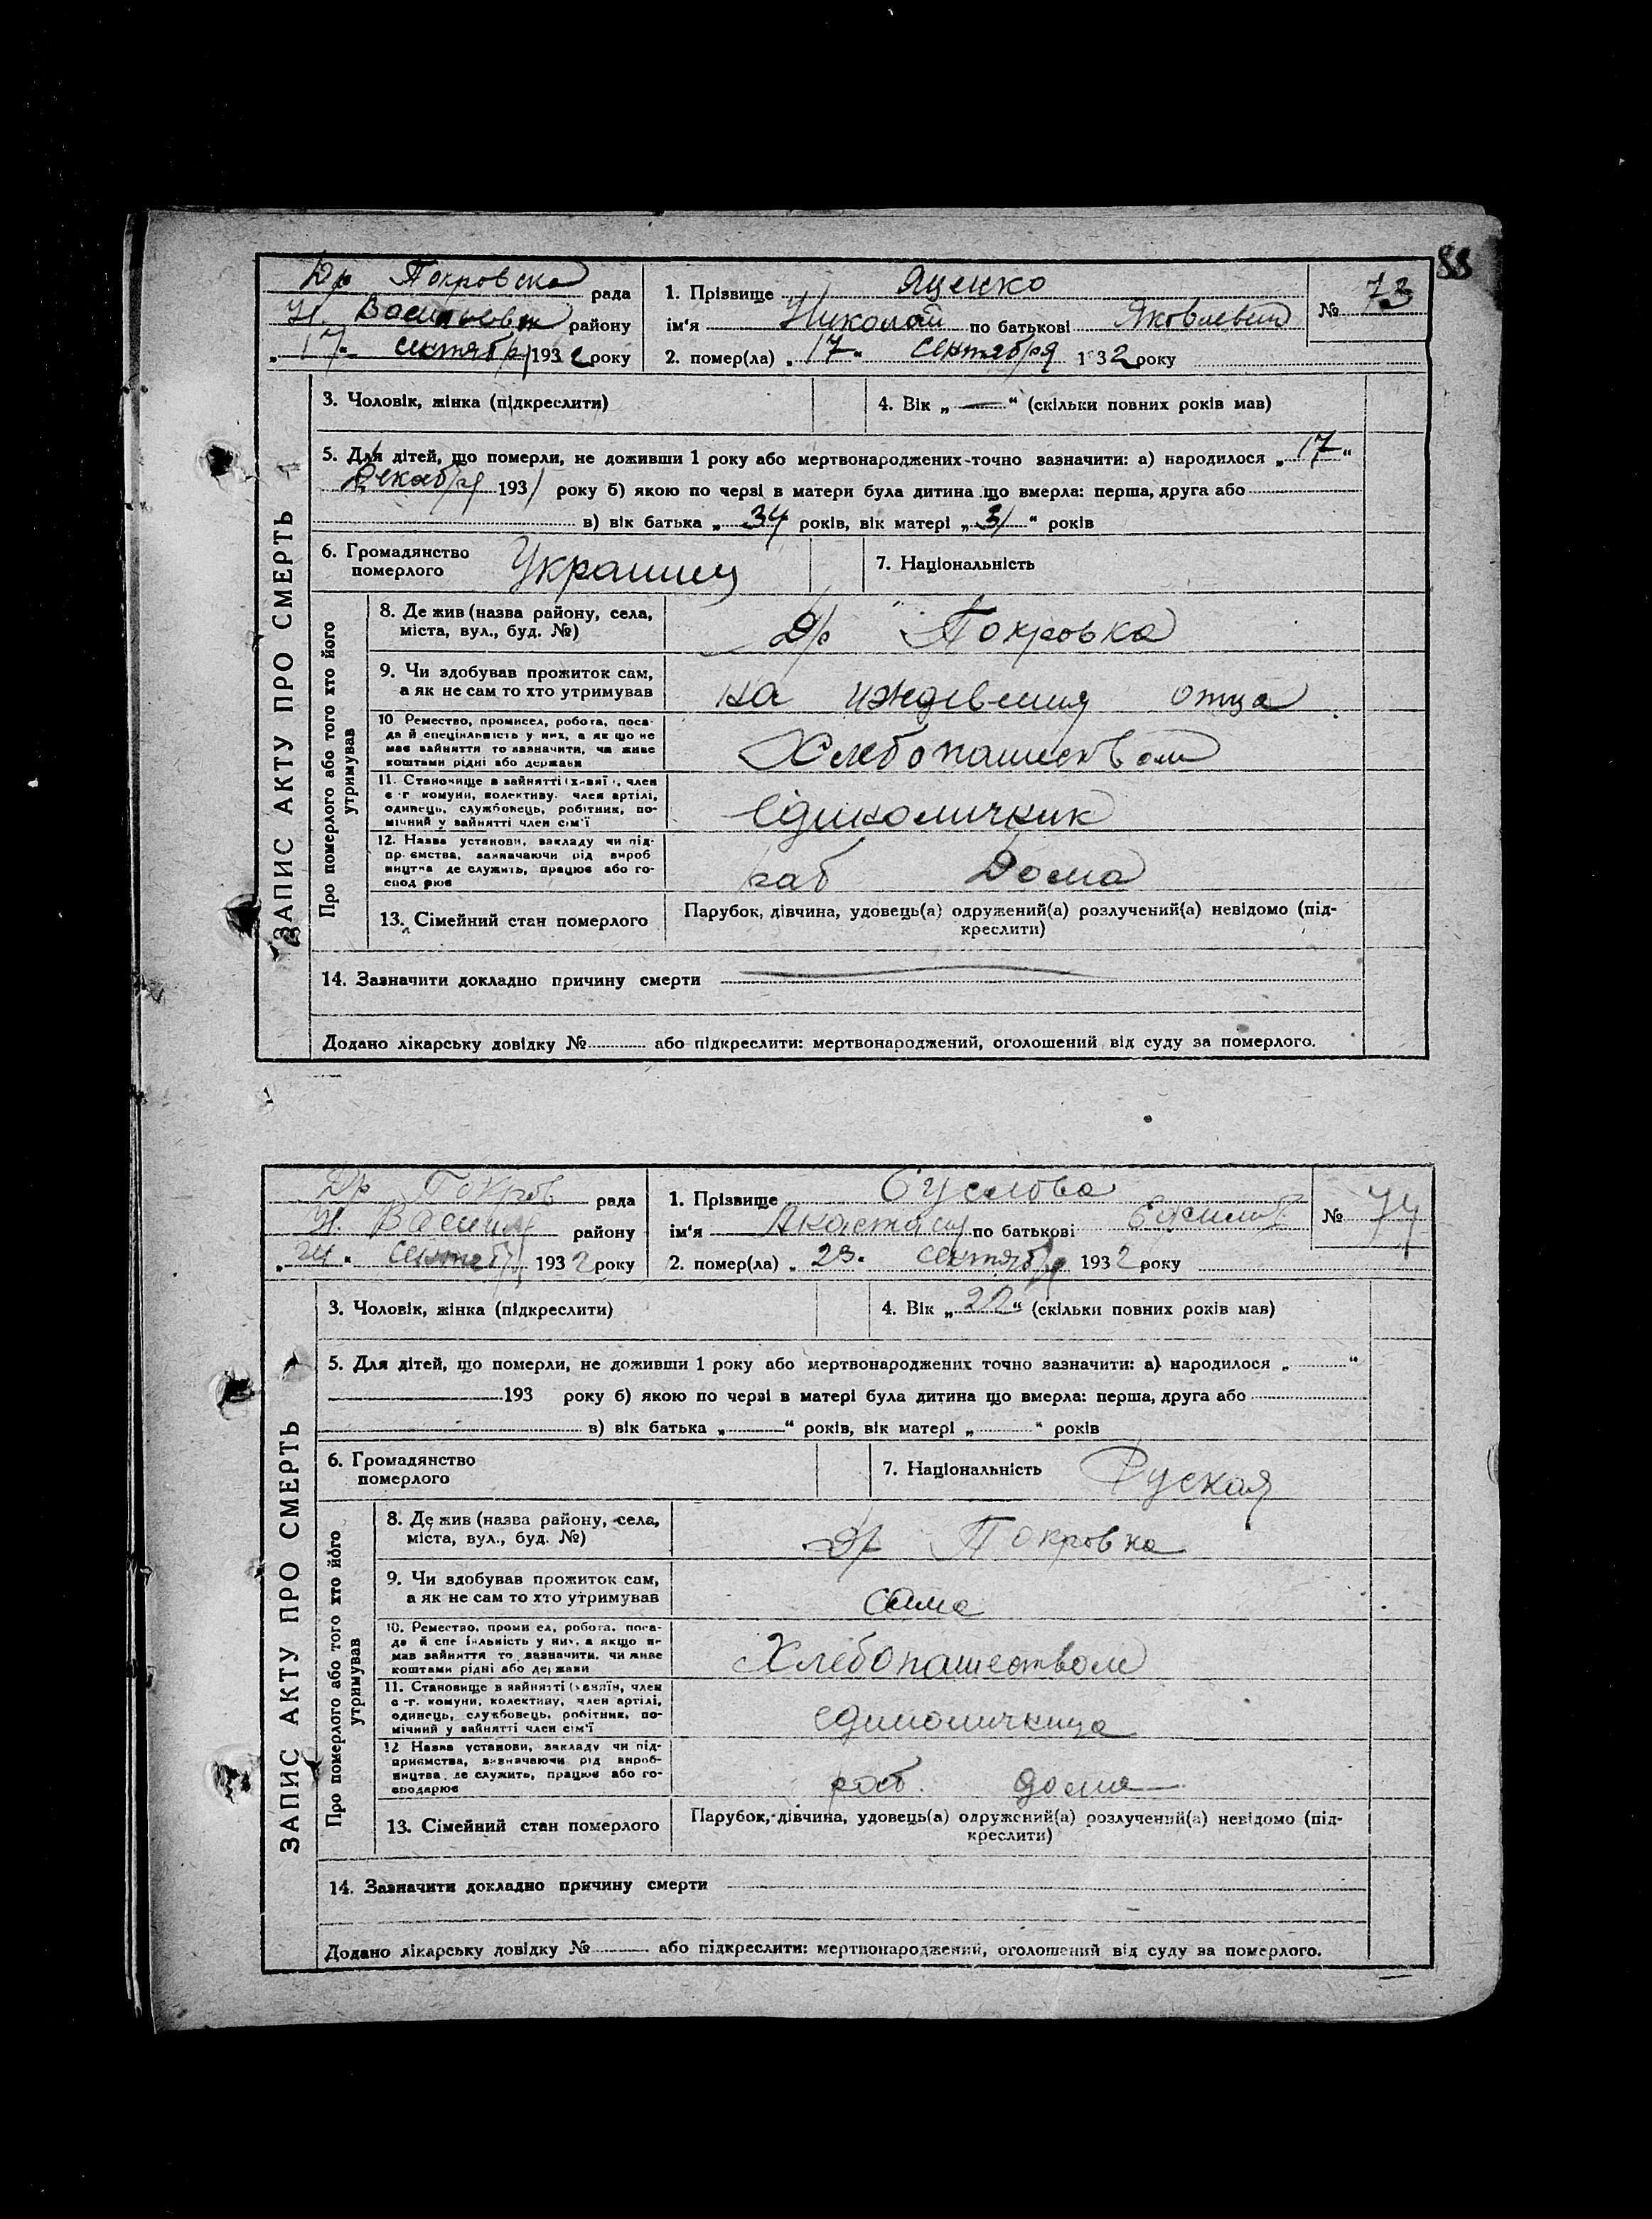 88
Др Покровска рада
Н. Васильевк району
„17“ сентябр 1932 року
1. Прізвище Яценко
ім'я Николай по батькові Яковлевич
№ 73
2. помер(ла) „17“ сентября 1932 року
ЗАПИС АКТУ ПРО СМЕРТЬ
3. Чоловік, жінка (підкреслити)
4. Вік „—“ (скільки повних років мав)
5. Для дітей, що померли, не доживши 1 року або мертвонароджених-точно зазначити: а) народилося „17“
Декабря 1931 року б) якою по черзі в матери була дитина що вмерла: перша, друга або
в) вік батька „34 років, вік матері „31“ років
6. Громадянство померлого Украинец
7. Національність
Про померлого або того хто його утримував
8. Де жив (назва району, села,
міста, вул., буд. №)
Др Покровка
9. Чи здобував прожиток сам,
а як не сам то хто утримував
на иждевения отца
10 Ремество, промисел, робота, поса-
да й спеціяльність у них, а як що не
має зайняття то зазначити, чи живе
коштами рідні або держави
Хлебопашеством
11. Становище в зайнятті (хазяї, член
с-г комуни, колективу, член артілі,
одинець, службовець, робітник, по-
мічний у зайнятті член сім'ї
единоличник
12. Назва установи, закладу чи під-
приємства, зазначаючи рід вироб
ництва де служить, працює або го-
сподарює
раб Дома
13. Сімейний стан померлого
Парубок, дівчина, удовець(а) одружений(а) розлучений(а) невідомо (під-
креслити)
14. Зазначити докладно причину смерти
Додано лікарську довідку № або підкреслити: мертвонароджений, оголошений від суду за померлого.
Др Покров рада
Н. Васил району
„24“ Сентеб 1932 року
1. Прізвище Суслова
ім'я Анастасия по батькові
№ 74
2. помер(ла) „23“ сентября 1932 року
ЗАПИС АКТУ ПРО СМЕРТЬ
3. Чоловік, жінка (підкреслити)
4. Вік „ “ (скільки повних років мав)
5. Для дітей, що померли, не доживши 1 року або мертвонароджених точно зазначити: а) народилося „ “
193 року б) якою по черзі в матері була дитина що вмерла: перша, друга або
в) вік батька „ “ років, вік матері „ “ років
6. Громадянство
померлого
7. Національність Руская
Про померлого або того хто його утримував
8. Де жив (назва району, села,
міста, вул., буд. №)
Др Покровка
9. Чи здобував прожиток сам,
а як не сам то хто утримував
сама
10. Ремество, промисел, робота, поса-
да й спеціяльність у них, а якщо не
мав зайняття то зазначити, чи живе
коштами рідні або держави
Хлебопашеством
11. Становище в зайнятті (хазяїн, член
с-г. комуни, колективу, член артілі,
одинець, службовець, робітник, по-
мічний у зайнятті член сім'ї
единоличница
12 Назва установи, закладу чи під-
приємства, зазначаючи рід вироб-
ництва де служить, працює або го-
сподарює
раб. дома
13. Сімейний стан померлого
Парубок, дівчина, удовець(а) одружений(а) розлучений(а) невідомо (під-
креслити)
14. Зазначити докладно причину смерти
Додано лікарську довідку № або підкреслити: мертвонароджений, оголошений від суду за померлого.